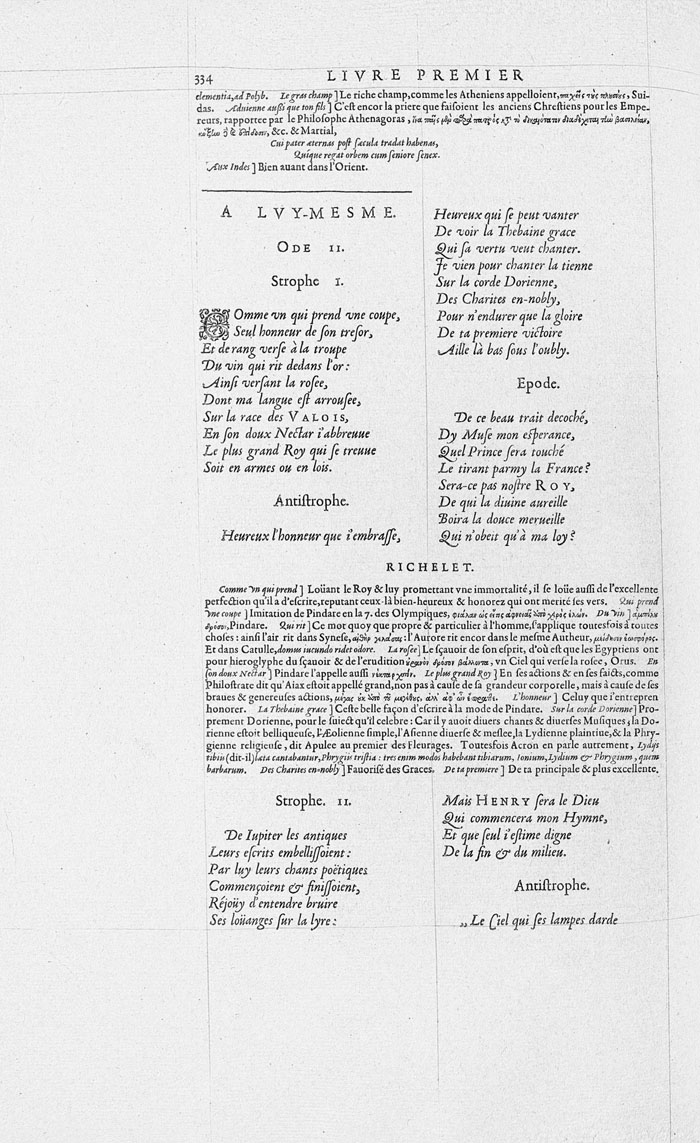 334 LIVRE PREMIER
clementia, ad Polyb. Le gras champ] Le riche champ, comme les Atheniens appelloient, Sui-
das. Aduienne außi que ton fils] C'est encor la priere que faisoient les anciens Chrestiens pour les Empe-
reurs, rapportee par le Philosophe Athenagoras,
&c. & Martial,
Cui pater æternas post sæcula tradat habenas,
Quique regat orbem cum seniore senex.
Aux Indes] Bien auant dans l'Orient.
A LVY-MESME.
ODE II.
Strophe I.
Comme vn qui prend vne coupe,
Seul honneur de son tresor,
Et de rang verse à la troupe
Du vin qui rit dedans l'or:
Ainsi versant la rosee,
Dont ma langue est arrousee,
Sur la race des VALOIS,
En son doux Nectar i'abbreuue
Le plus grand Roy qui se treuue
Soit en armes ou en lois.
Antistrophe.
Heureux l'honneur que i'embrasse,
Heureux qui se peut vanter
De voir la Thebaine grace
Qui sa vertu veut chanter.
Je vien pour chanter la tienne
Sur la corde Dorienne,
Des Charites en-nobly,
Pour n'endurer que la gloire
De ta premiere victoire
Aille là bas sous l'oubly.
Epode.
De ce beau trait decoché,
Dy Muse mon esperance,
Quel Prince sera touché
Le tirant parmy la France?
Sera-ce pas nostre ROY,
De qui la diuine aureille
Boira la douce merueille
Qui n'obeit qu'à ma loy?
RICHELET.
Comme vn qui prend] Loüant le Roy & luy promettant vne immortalité, il se loüe aussi de l'excellente
perfection qu'il a d'escrire, reputant ceux-là bien-heureux & honorez qui ont merité ses vers. Qui prend
vne coupe] Imitation de Pindare en la 7. des Olympiques, Du vin]
Pindare. Qui rit] Ce mot quoy que propre & particulier à l'homme, s'applique toutesfois à toutes
choses: ainsi l'air rit dans Synese, : l'Aurore rit encor dans le mesme Autheur,
Et dans Catulle, domus iucundo ridet odore. La rosee] Le sçauoir de son esprit, d'où est que les Egyptiens ont
pour hieroglyphe du sçauoir & de l'erudition vn Ciel qui verse la rosee, Orus. En
son doux Nectar] Pindare l'appelle aussi Le plus grand Roy] En ses actions & en ses faicts, comme
Philostrate dit qu'Aiax estoit appellé grand, non pas à cause de sa grandeur corporelle, mais à cause de ses
braues & genereuses actions, L'honneur] Celuy que i'entrepren
honorer. La Thebaine grace] Ceste belle façon d'escrire à la mode de Pindare. Sur la corde Dorienne] Pro-
prement Dorienne, pour le suiect qu'il celebre: Car il y auoit diuers chants & diuerses Musiques, la Do-
rienne estoit belliqueuse, l'Æolienne simple, l'Asienne diuerse & meslee, la Lydienne plaintiue, & la Phry-
gienne religieuse, dit Apulee au premier des Fleurages. Toutesfois Acron en parle autrement, Lydijs
tibiis (dit-il) læta cantabantur, Phrygiis tristia: tres enim modos habebant tibiarum, Ionium, Lydium & Phrygium, quem
barbarum. Des Charites en-nobly] Fauorisé des Graces. De ta premiere] De ta principale & plus excellente.
Strophe. II.
De Iupiter les antiques
Leurs escrits embellissoient:
Par luy leurs chants poëtiques
Commençoient & finissoient,
Réjoüy d'entendre bruire
Ses loüanges sur la lyre:
Mais HENRY sera le Dieu
Qui commencera mon Hymne,
Et que seul i'estime digne
De la fin & du milieu.
Antistrophe.
„Le Ciel qui ses lampes darde